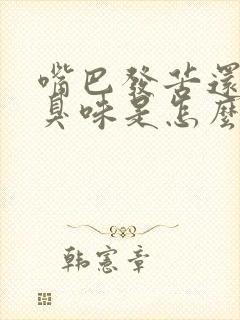 嘴巴發苦還
臭味是怎麼
韓憲章